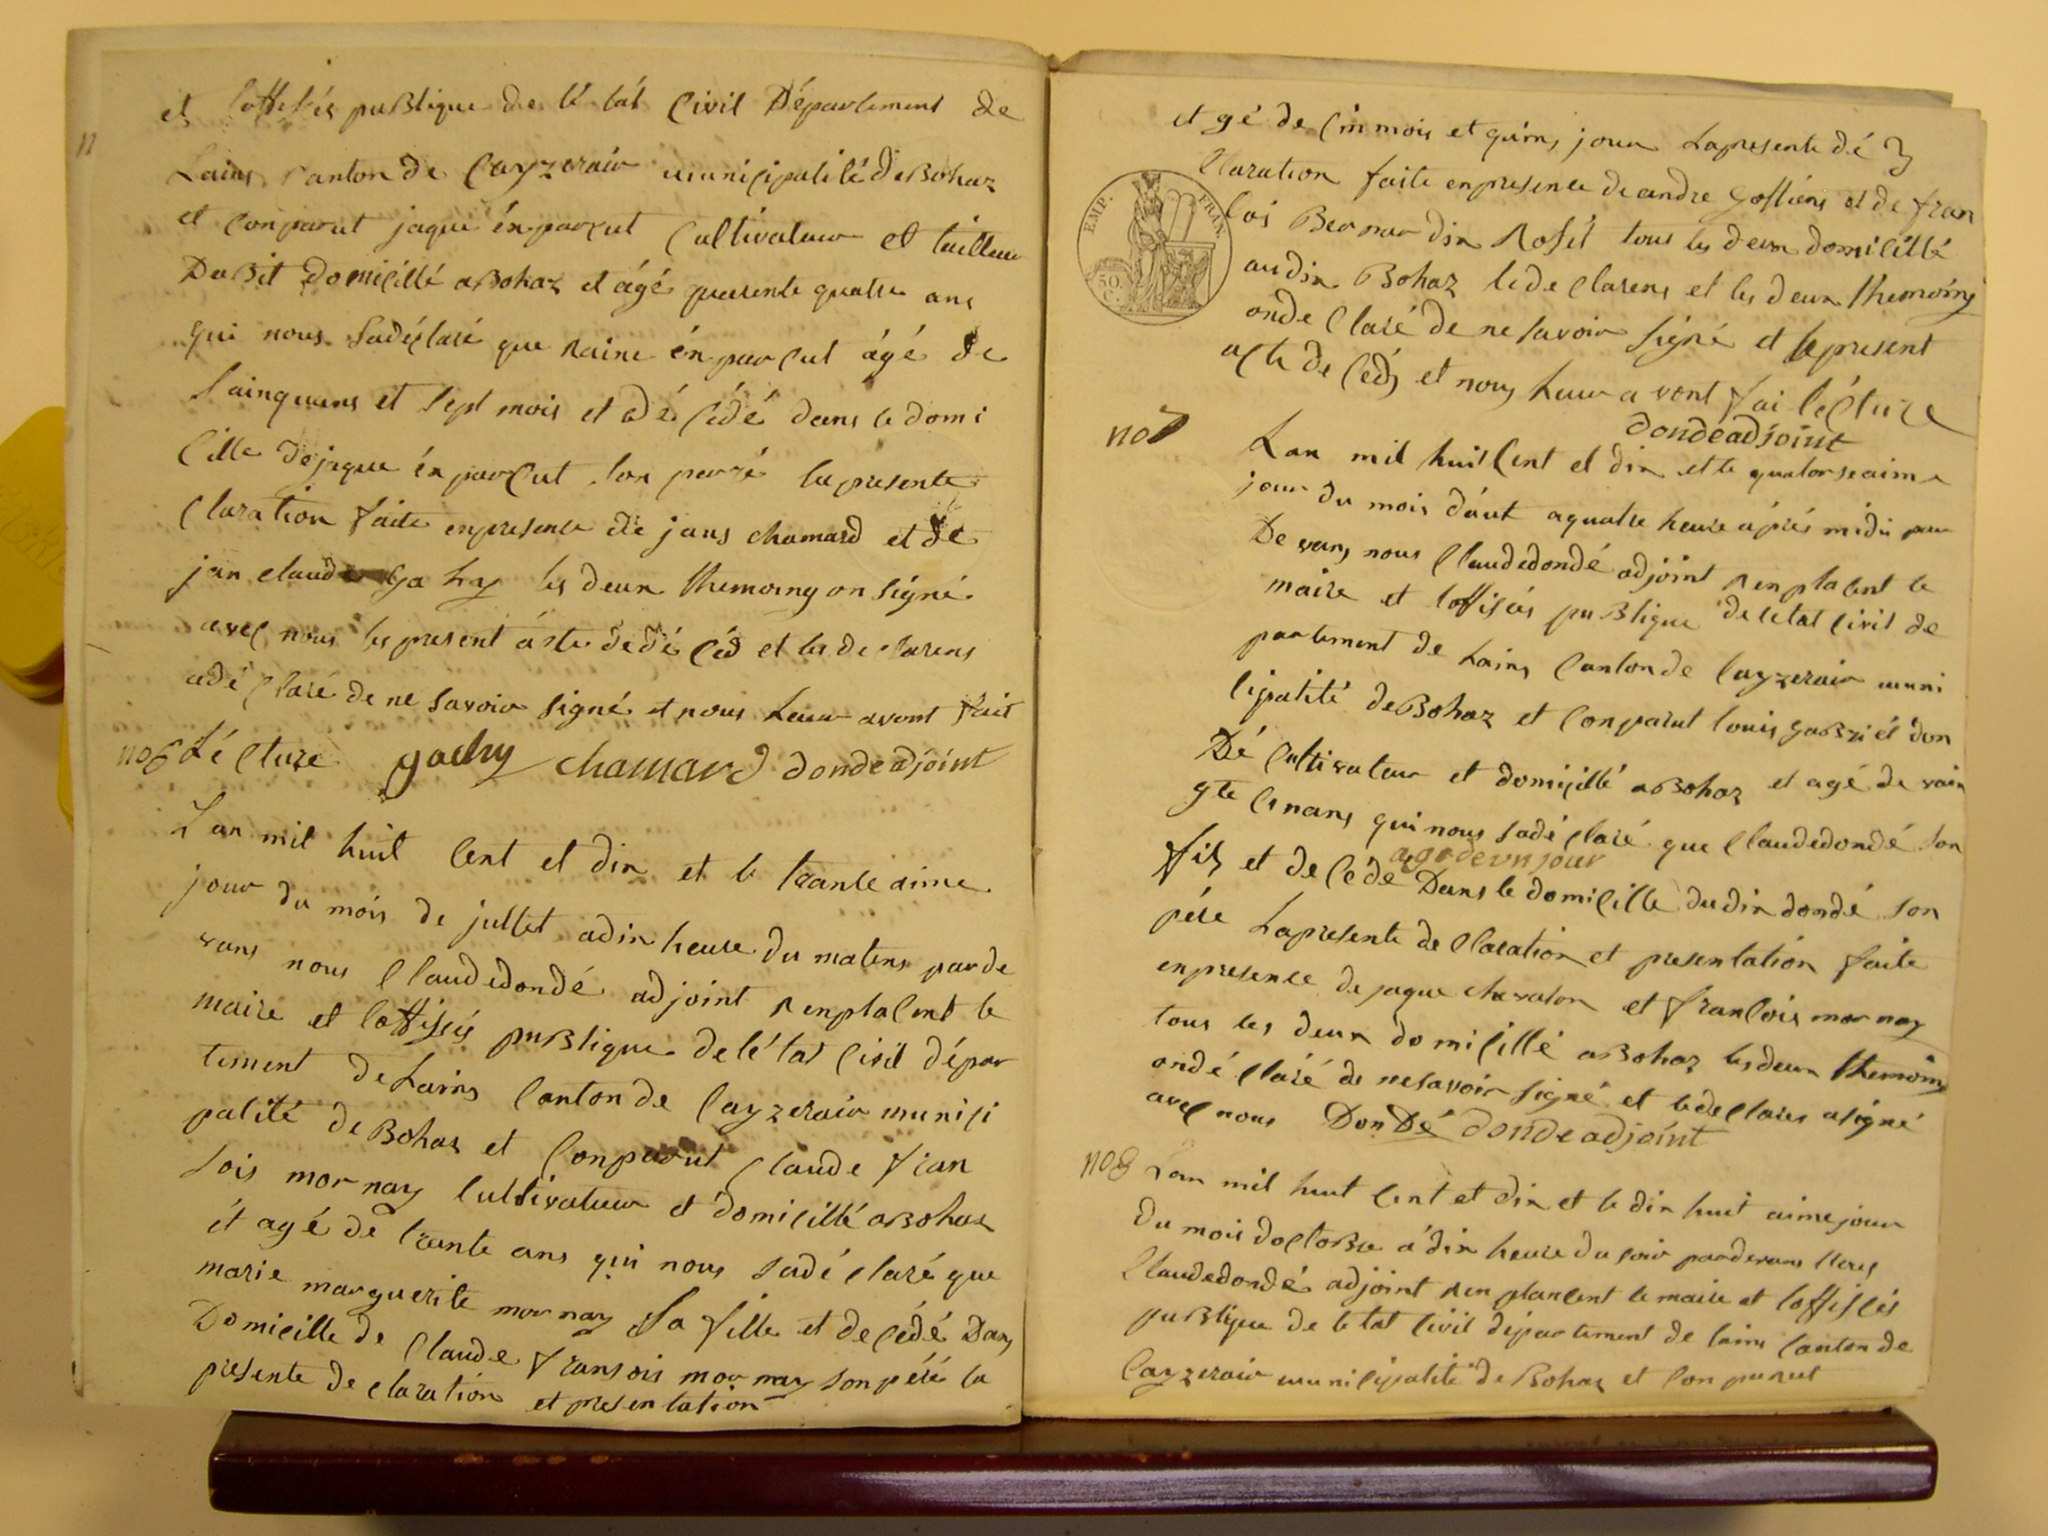 11
et loffisiés puBlique de lé tat Civil Département de
Lains Canton de Cayzeraiv municipalité deBohaz
et Conparut jaque énparcut Cultivateur et tailleur
DaBit domicillé aBohaz et âgé quarente quatre ans
qui nous sadéclaré que Raine énparcut âgé de
Cainquans et sept mois et adé cédé dans le domi
Cille dejaque énparcut son perre la presente
Claration faite enpresence de jans chamard et de
jan claude Gahy les deux themoing on signé
avec nous les present áste dedé céd et les declarens
adé claré de ne savoir signé et nous Leur avont fait
no6 Lécture gachy chamard dondeadjoint
Lan mil huit Cent et dix et le tranteaime
jour du mois de jullet adix heure du matens parde
vans nous Claudedondé adjoint Renplacent le
maire et loffissiés puBlique delétat Civil dépar
tement deLains Canton de Cayzeraiv munici
palité deBohas et Conparut Claude fran
sois mornay Cultivateur et domicillé aBohaz
ét agé de trante ans qui nous sadé claré que
marie marguerite mornay sa fille et décédé Dans
Domicille de Claude fransois mornay son péré la
presente de claration et presentation
et gé de Cin mois et quins jour Lapresente dé
3
Claration faite enpresence de andre gostiens et de fran
Cois Bernardin Rosét tous les deux domicillé
audix Bohaz ledeclarens et les deux themoins
ondeclaré de ne savoir signé et le present
acte de céds et nous Leur avont fai lécture
dondéadjoint
EMP. FRAN.
50 C.
no7
Lan mil huit Cent et dix et le quatorseaime
jour du mois dáut aquatre heure áprés midi par
Devans nous Claudedondé adjoint Renplacent le
maire et loffisiés puBlique de letat Civil de
partement de Lains Canton de Cayzeraiv muni
cipalité deBohaz et Conparut louis gaBriél don
Dé Cultivateur et domicillé aBohaz et agé de vain
gte Cinans qui nous sadé claré que Claudedondé son
agé de un jour
fils et de cédé Dans le domicille dudix dondé son
pére Lapresente de Claration et presentation faite
enpresence de jaque chevalon et francois mornay
tous les deux domicillé aBohaz lesdeux themoins
ondé claré de nesavoir signé et ledeclares asigné
avec nous DonDé dondeadjoint
no8 Lan mil huit Cent et dix et le dix huit aimejour
du mois doctoBre ádix heure du soir pardevans Nous
Claudedondé adjoint Renplancent le maire et loffissiés
puBlique de letat Civil département de lains Canton de
Cayzeraiv municipalité deBohaz et Conparut